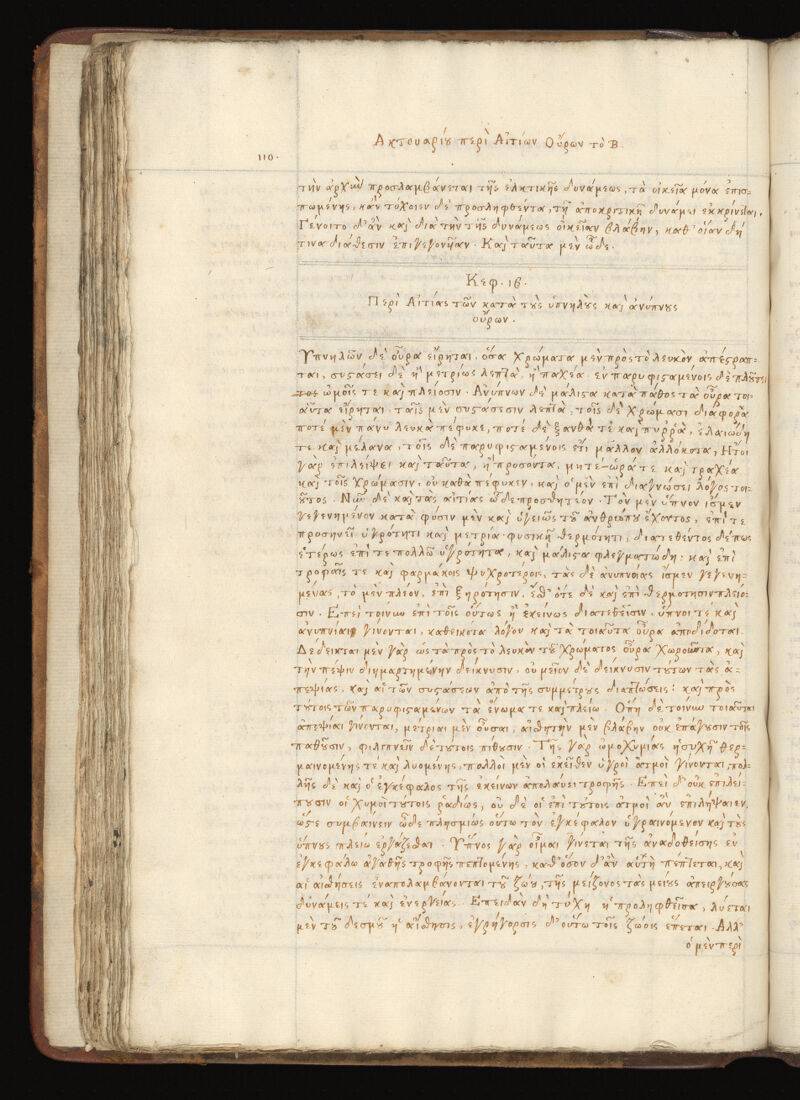 Ακτουαρίου περὶ Αἰτίων Οὔρων τὸ Β.
110.
τὴν ἀρχὴν προσλαμβάνεται τῆς ἑλκτικῆς δυνάμεως, τὰ οἰκεῖα μόνα ἐπισ-
πωμένης, κἂν τύχοιεν δὲ προσληφθέντα, τῇ ἀποκριτικῇ δυνάμει ἐκκρίνεται.
Γένοιτο δ' ἂν καὶ διὰ τὴν τῆς δυνάμεως οἰκείαν βλάβην, καθ' οἵαν δή
τινα διάθεσιν ἐπιγεγονυῖαν. Καὶ ταῦτα μὲν ὧδε.
Κεφ. ιβ.
Περὶ Αἰτίας τῶν κατὰ τοὺς ὑπνηλοὺς καὶ ἀνύπνους
οὔρων.
Υπνηλῶν δὲ οὖρα εἴρηται, ὅσα χρώματα μὲν πρὸς τὸ λευκὸν ἀπέστραπ-
ται, συστάσει δὲ ἢ μετρίως λεπτὰ, ἢ παχέα. ἐν παρυφισταμένοις δὲ
ὠμοῖς τε καὶ πλείοσιν. Ανύπνων δὲ μάλιστα κατὰ πάθος τὰ οὖρα τοι-
αῦτα εἴρηται. ταῖς μὲν συστάσεσιν λεπτὰ, τοῖς δὲ χρώμασι διάφορα
ποτὲ μὲν πάνυ λευκὰ πέφυκε, ποτὲ δὲ ξανθά τε καὶ πυρρά, ἐλαιώδη
τε καὶ μέλανα, τοῖς δὲ παρυφισταμένοις ἔτι μᾶλλον ἀλλόκοτα, Ητοι
γὰρ ἐπιλείψει καὶ ταῦτα, ἢ προσόντα, τε καὶ τραχέα
καὶ τοῖς χρώμασιν, οὐ καθὰ πέφυκεν, καὶ ὁ μὲν ἐπὶ διαγνώσει λόγος τοι-
οῦτος. Νῦν δὲ καὶ τὰς αἰτίας ὧδε προσθετέον. Τὸν μὲν ὕπνον ἴσμεν
γεγενημένον κατὰ φύσιν μὲν καὶ ὑγειῶς τοῦ ἀνθρώπου ἔχοντος, ἐπί τε
προσηνεῖ ὑγρότητι καὶ μετρίᾳ φυσικῇ θερμότητι, διατεθέντος δέ πως
ἑτέρως ἐπί τε πολλῇ ὑγρότητα, καὶ μάλιστα φλεγματώδη. καὶ ἐπὶ
τροφαῖς τε καὶ φαρμάκοις ψυχροτέροις, τὰς δὲ ἀνυπνοίας ἴσμεν γεγενη-
μένας, τὸ μὲν πλεον, ἐπὶ ξηρότησιν, ἔσθ' ὅτε δὲ καὶ ἐπὶ θερμότησιν πλείο-
σιν. Επεὶ τοίνυν ἐπὶ τοῖς οὕτως ἢ ἐκείνως διατεθεῖσιν, ὕπνοι τε καὶ
ἀνυπνίαι γίνονται, καθεικότα λόγον καὶ τὰ τοιαῦτα οὖρα ἀποδίδοται.
Δέδεικται μὲν γὰρ ὡς τὰ πρὸς τὸ λευκὸν τοῦ χρώματος οὖρα χωροῦντα, καὶ
τὴν πέψιν διημαρτημένην δείκνυσιν, οὐ μεῖον δὲ δείκνυσιν τούτων τὰς ἀ-
πεψίας, καὶ αἱ τῶν συστάσεων ἀπὸ τῆς συμμέτρους διαπτώσεις: καὶ πρὸς
τούτοις τῶν παρυφισταμένων τὰ ἔνωμά τε καὶ πλείω. Οπη δὲ τοίνυν τοιαῦται
ἀπεψίαι γίνονται, μέτριαι μὲν οὖσαι, αἰσθητὴν μὲν βλάβην οὐκ ἐπάγουσιν τοῖς
παθοῦσιν, φιλυπνεῖν δὲ τούτοις πείθουσιν. Τῆς γὰρ ὠμοχυμίας ἡσυχῇ θερ-
μαινομένης τε καὶ λυομένης, πολλοὶ μὲν οἱ ἐκεῖθεν ὑγροὶ ἀτμοὶ γίνονται, πολ-
λῆς δὲ καὶ ὁ ἐγκέφαλος τῆς ἐκείνων ἀπολαύει τροφῆς. Επεὶ δ' οὐκ ἐπιλεί-
πουσιν οἱ χυμοὶ τούτοις ῥαδίως, οὐ δὲ οἱ ἐπὶ τούτοις ἀτμοὶ ἂν ἐπιλήψαιεν,
ὥστε συμβαίνειν ὧδε πλησμίως οὕτω τὸν ἐγκέφαλον ὑγραινόμενον καὶ τοὺς
ὕπνους πλείω ἐργάζεσθαι. Υπνος γὰρ οἶμαι γίνεται τῆς ἀναδοθείσης ἐν
ἐγκεφάλῳ ἀγαθῆς τροφῆς πεπτομένης, καθ' ὅσον δ' ἂν αὐτὴ πέπτεται, καὶ
αἱ αἰσθήσεις ἐναπολαμβάνονται τοῦ ζώου, τῆς μείζονος τὰς μείους ἀπειργούσας
δυνάμεις τὲ καὶ ἐνεργείας. Επειδὰν δὴ τύχῃ ἡ προληφθεῖσα, λύεται
μὲν τοῦ δεσμοῦ ἡ αἴσθησις, ἐγρήγορσις δ' οὕτω τοῖς ζώοις ἕπεται. Αλλ'
ὁ μὲν περὶ